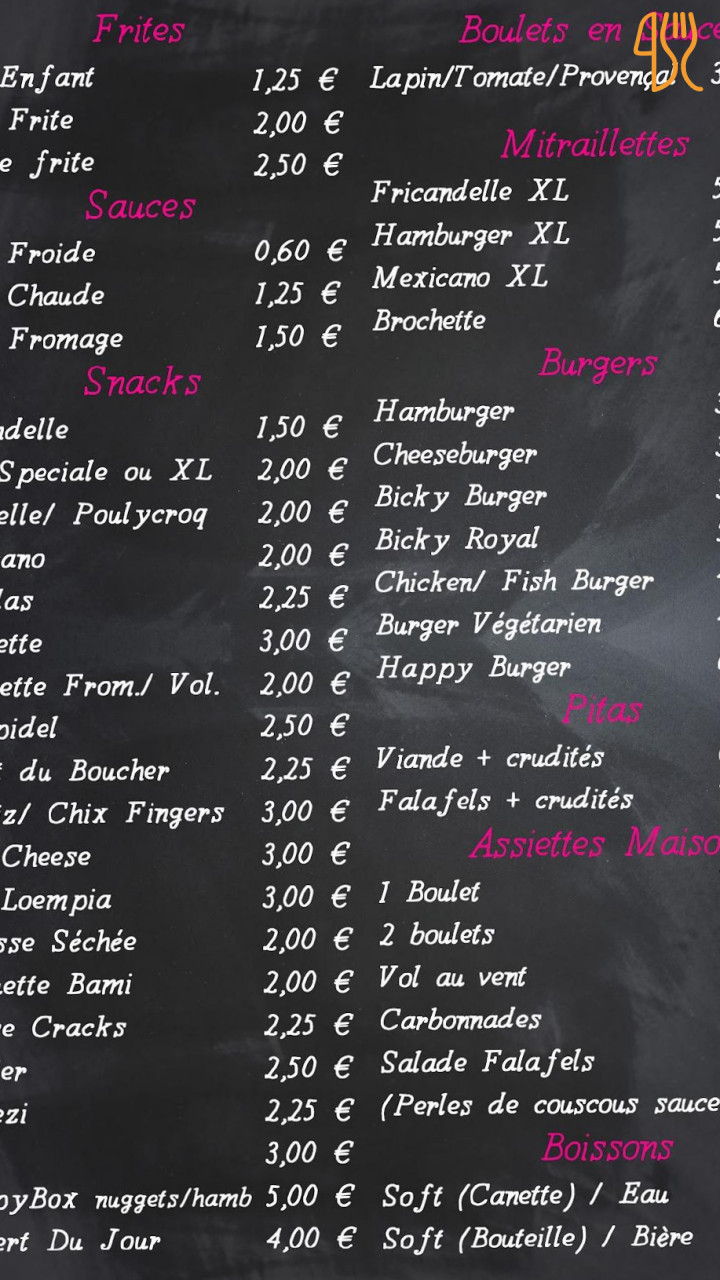 Frites
Enfant 1,25 €
Frite 2,00 €
e frite 2,50 €
Sauces
Froide 0,60 €
Chaude 1,25 €
Fromage 1,50 €
Snacks
delle 1,50 €
Speciale ou XL 2,00 €
elle/ Poulycroq 2,00 €
ano 2,00 €
las 2,25 €
ette 3,00 €
ette From./ Vol. 2,00 €
pidel 2,50 €
du Boucher 2,25 €
z/ Chix Fingers 3,00 €
Cheese 3,00 €
Loempia 3,00 €
sse Séchée 2,00 €
ette Bami 2,00 €
e Cracks 2,25 €
er 2,50 €
ezi 2,25 €
3,00 €
pyBox nuggets/hamb 5,00 €
ert Du Jour 4,00 €
Boulets en Sauce
Lapin/Tomate/Provença. 3
Mitraillettes
Fricandelle XL
Hamburger XL
Mexicano XL
Brochette
Burgers
Hamburger
Cheeseburger
Bicky Burger
Bicky Royal
Chicken/ Fish Burger
Burger Végétarien
Happy Burger
Pitas
Viande + crudités
Falafels + crudités
Assiettes Maiso
1 Boulet
2 boulets
Vol au vent
Carbonnades
Salade Falafels
(Perles de couscous sauce
Boissons
Soft (Canette) / Eau
Soft (Bouteille) / Bière